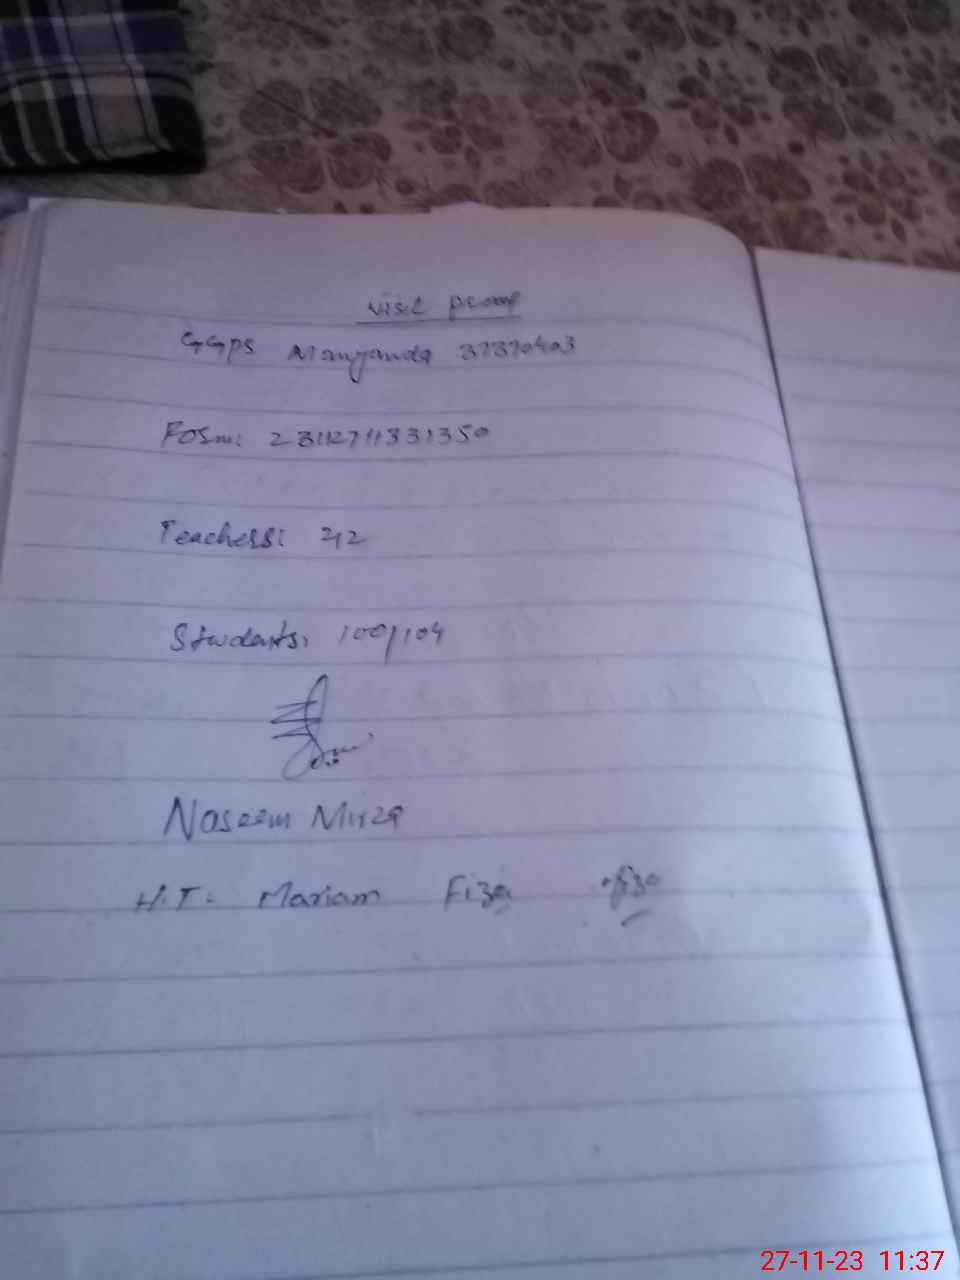 visit proof
GGPS Manyanda 37370403
Form: 23112711331350
Teachers: 2/2
Students: 100/104
Naseem Mirza
H.T. Mariam Fiza
27-11-23 11:37